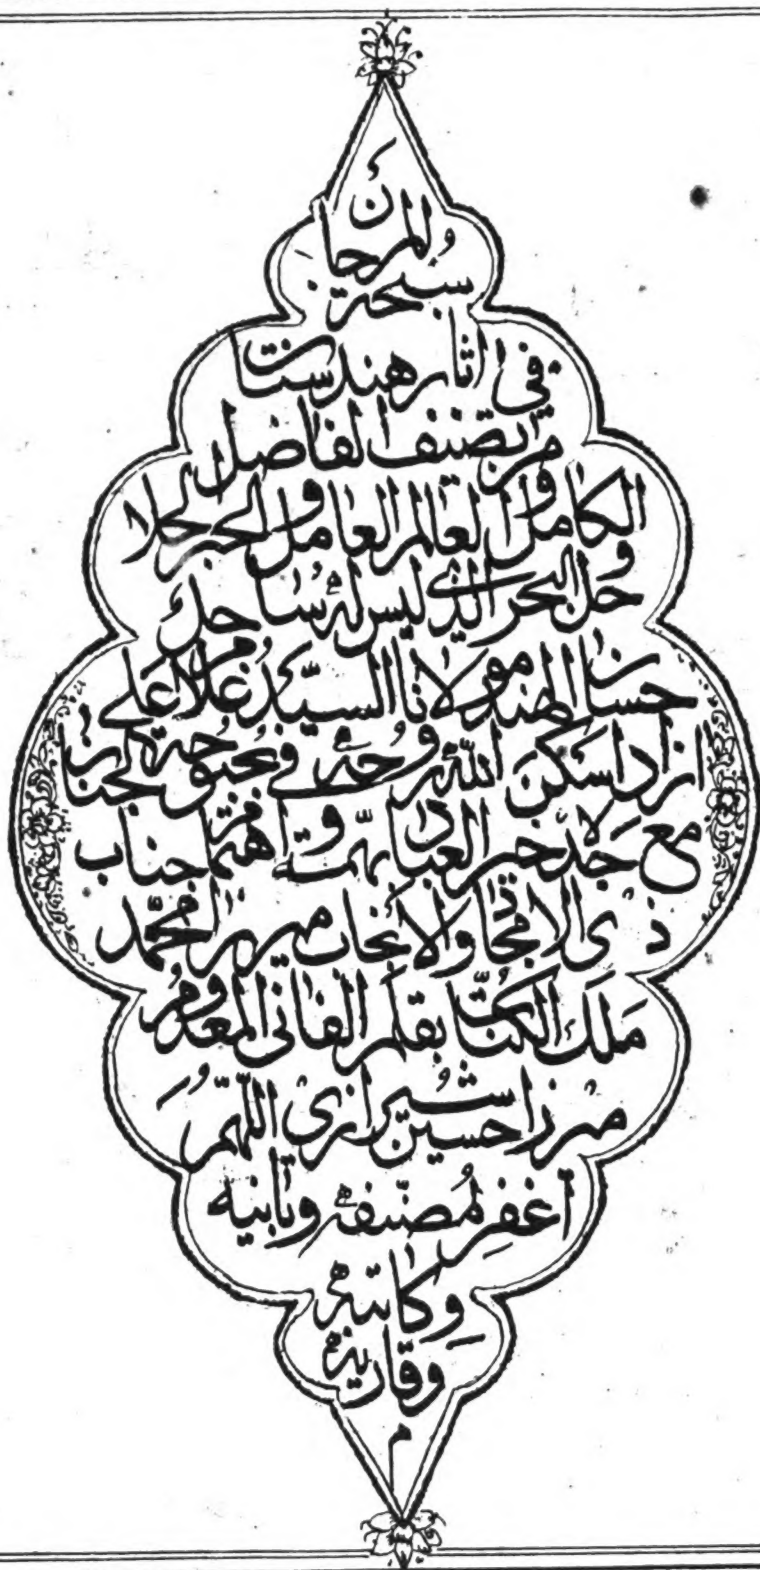 سبحة المرجان
في آثار هندستان
من تصنيف الفاضل
الكامل و العالم العامل و الحبر الحلا
حل و البحر الذي ليس له ساحل
حسان الهند مولانا السيد غلام على
ازاد اسكن الله روحه في بحبوحة الجنان
مع جده خير العباد و اهتم جناب
ذى الافتخار والا
ملك الكتاب بقلم الفانى المعدوم
ميرزا حسين شيرازى اللهم
اغفر لمصنفه وبانيه
وكاتبه
وقاريه
م